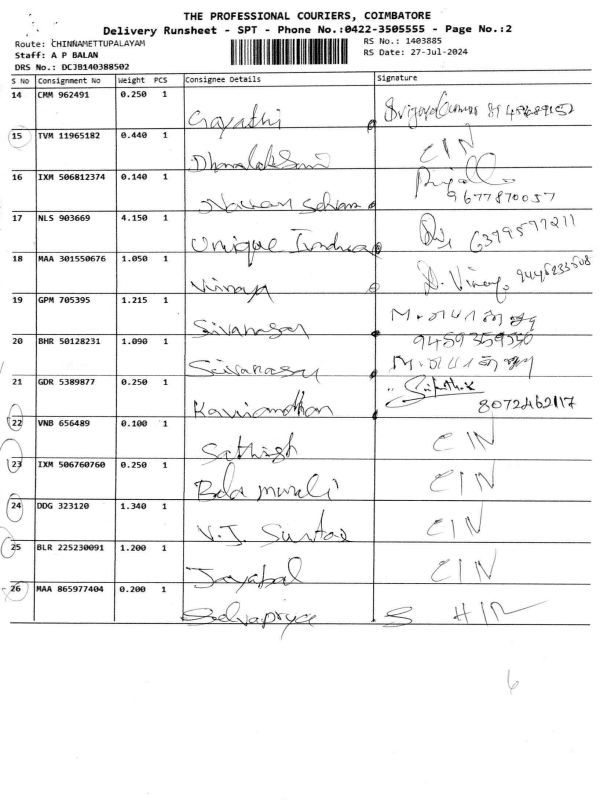 THE PROFESSIONAL COURIERS, COIMBATORE
Delivery Runsheet - SPT - Phone No.:0422-3505555 - Page No.:2
Route: CHINNAMETTUPALAYAM
RS No.: 1403885
Staff: A P BALAN
RS Date: 27-Jul-2024
DRS No.: DCJB140388502
S No Consignment No Weight PCS Consignee Details Signature
14 CMM 962491 0.250 1 Gayathi
15 TVM 11965182 0.440 1 CIN
16 IXM 506812374 0.140 1
9677870057
17 NLS 903669 4.150 1 Unique 6379597211
18 MAA 301550676 1.050 1 Vinaya D. Vinay
19 GPM 705395 1.215 1 Sivanasar
20 BHR 50128231 1.090 1 9459359550
21 GDR 5389877 0.250 1
8072462117
22 VNB 656489 0.100 1 Sathish CIN
23 IXM 506760760 0.250 1 Bala murali CIN
24 DDG 323120 1.340 1 V.J. CIN
25 BLR 225230091 1.200 1 Jayabal CIN
26 MAA 865977404 0.200 1 Selvapriya S
6